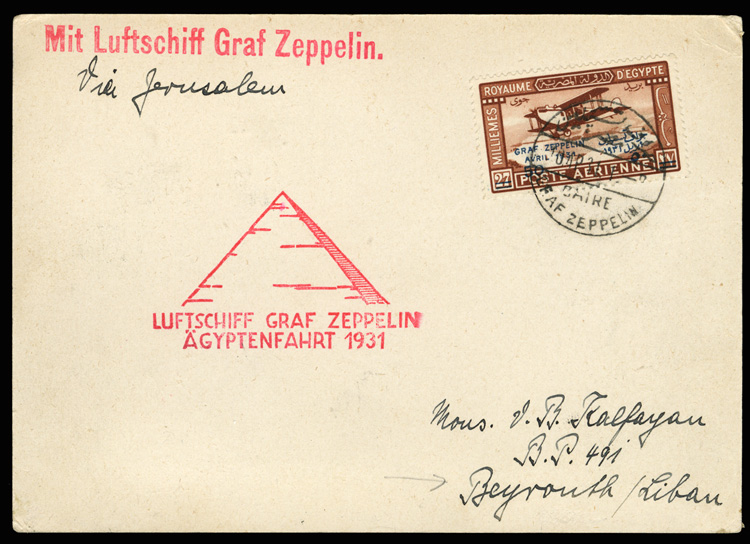 Mit Luftschiff Graf Zeppelin.
Via Jerusalem
ROYAUME D'EGYPTE
الدولة المصرية
بريد جوى
MILLIEMES
GRAF ZEPPELIN
AVRIL 1931
27 POSTE AÉRIENNE
CAIRE
GRAF ZEPPELIN
LUFTSCHIFF GRAF ZEPPELIN
ÄGYPTENFAHRT 1931
Mons. V. B. Kalfayan
B.P. 491
Beyrouth / Liban